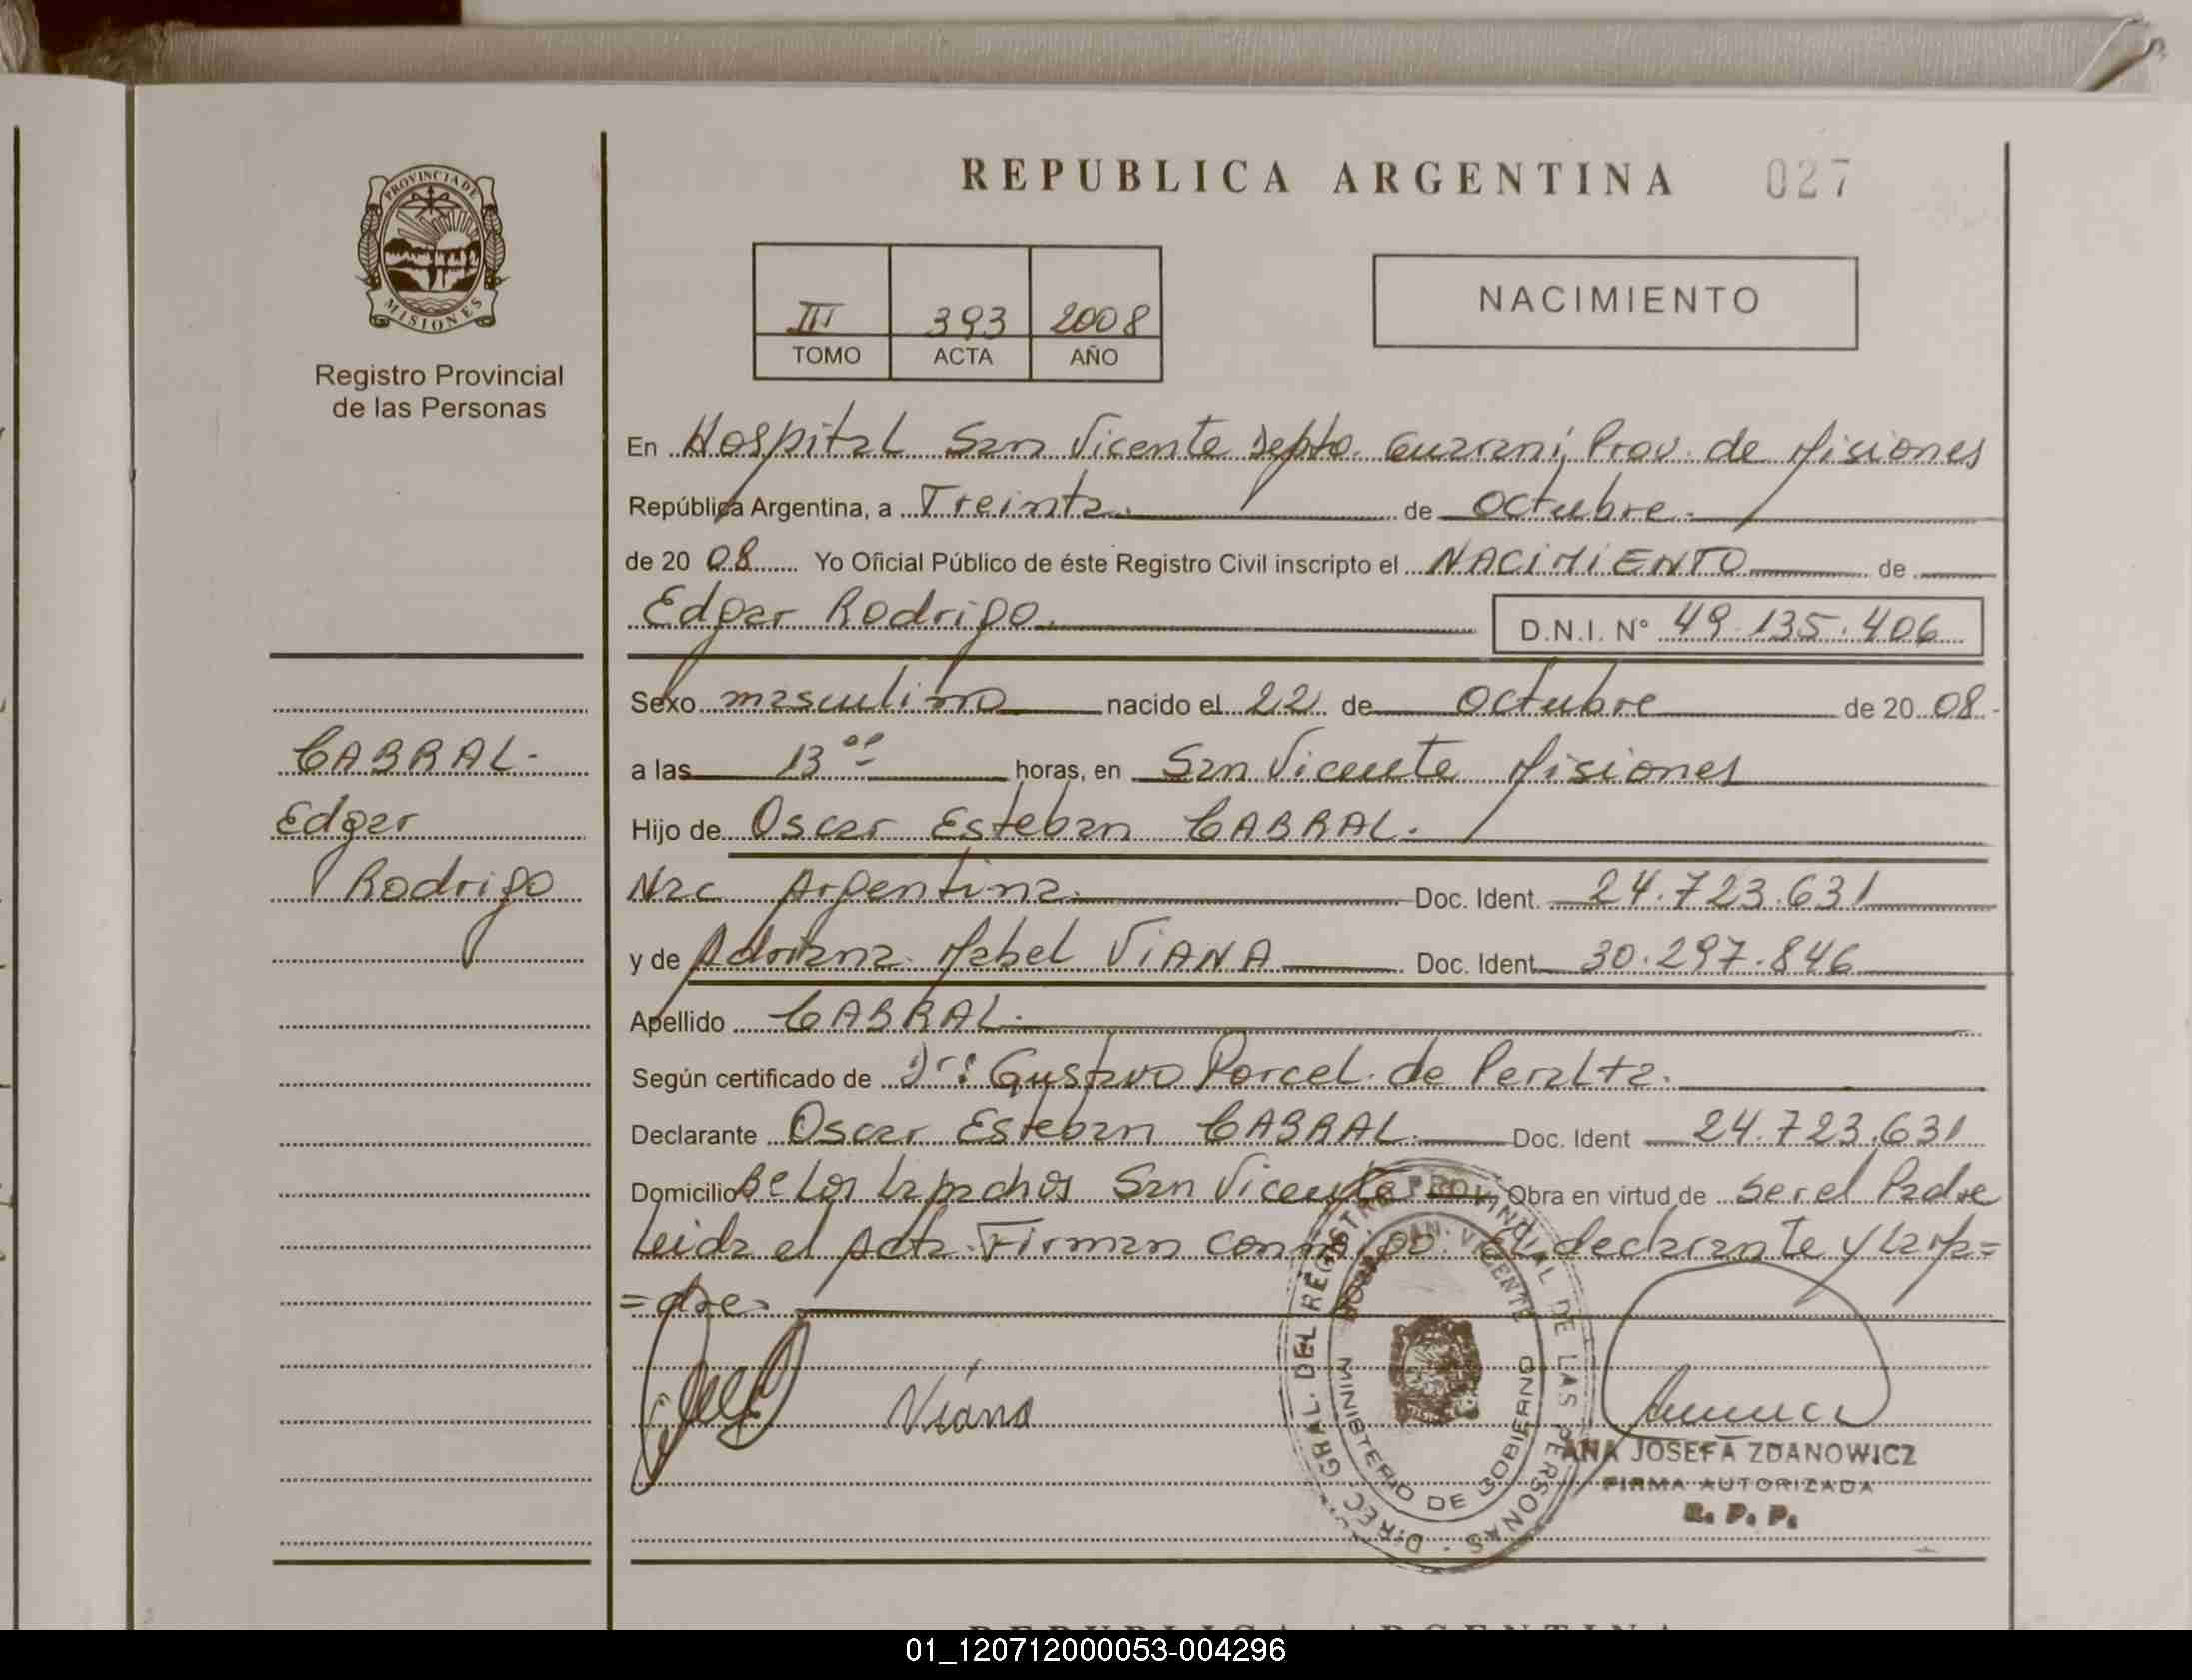 PROVINCIA DE
MISIONES
Registro Provincial
de las Personas
CABRAL.
Edgar
Rodrigo
REPUBLICA ARGENTINA 027
III 393 2008
TOMO ACTA AÑO
NACIMIENTO
En Hospital San Vicente Depto. Guarani, Prov. de Misiones
República Argentina, a Treinta. de Octubre.
de 20 08 Yo Oficial Público de éste Registro Civil inscripto el NACIMIENTO de
Edgar Rodrigo. D.N.I. N° 49.135.406
Sexo masculino nacido el 22 de Octubre de 20 08.
a las 13 00 horas, en San Vicente Misiones
Hijo de Oscar Esteban CABRAL.
Nac Argentina. Doc. Ident. 24.723.631
y de Adriana Mabel VIANA Doc. Ident. 30.297.846
Apellido CABRAL.
Según certificado de Dr: Gustavo Porcel de Peralta.
Declarante Oscar Esteban CABRAL. Doc. Ident 24.723.631
Domicilio Bº Los Lapachos San Vicente Obra en virtud de ser el Padre
Leida el Acta. Firman conmigo. El declarante y la Ma=
=dre.
Viana
DIREC. GRAL. DEL REGISTRO PROVINCIAL DE LAS PERSONAS
SAN VICENTE
MINISTERIO DE GOBIERNO
ANA JOSEFA ZDANOWICZ
FIRMA AUTORIZADA
R. P. P.
REPUBLICA ARGENTINA
01_120712000053-004296